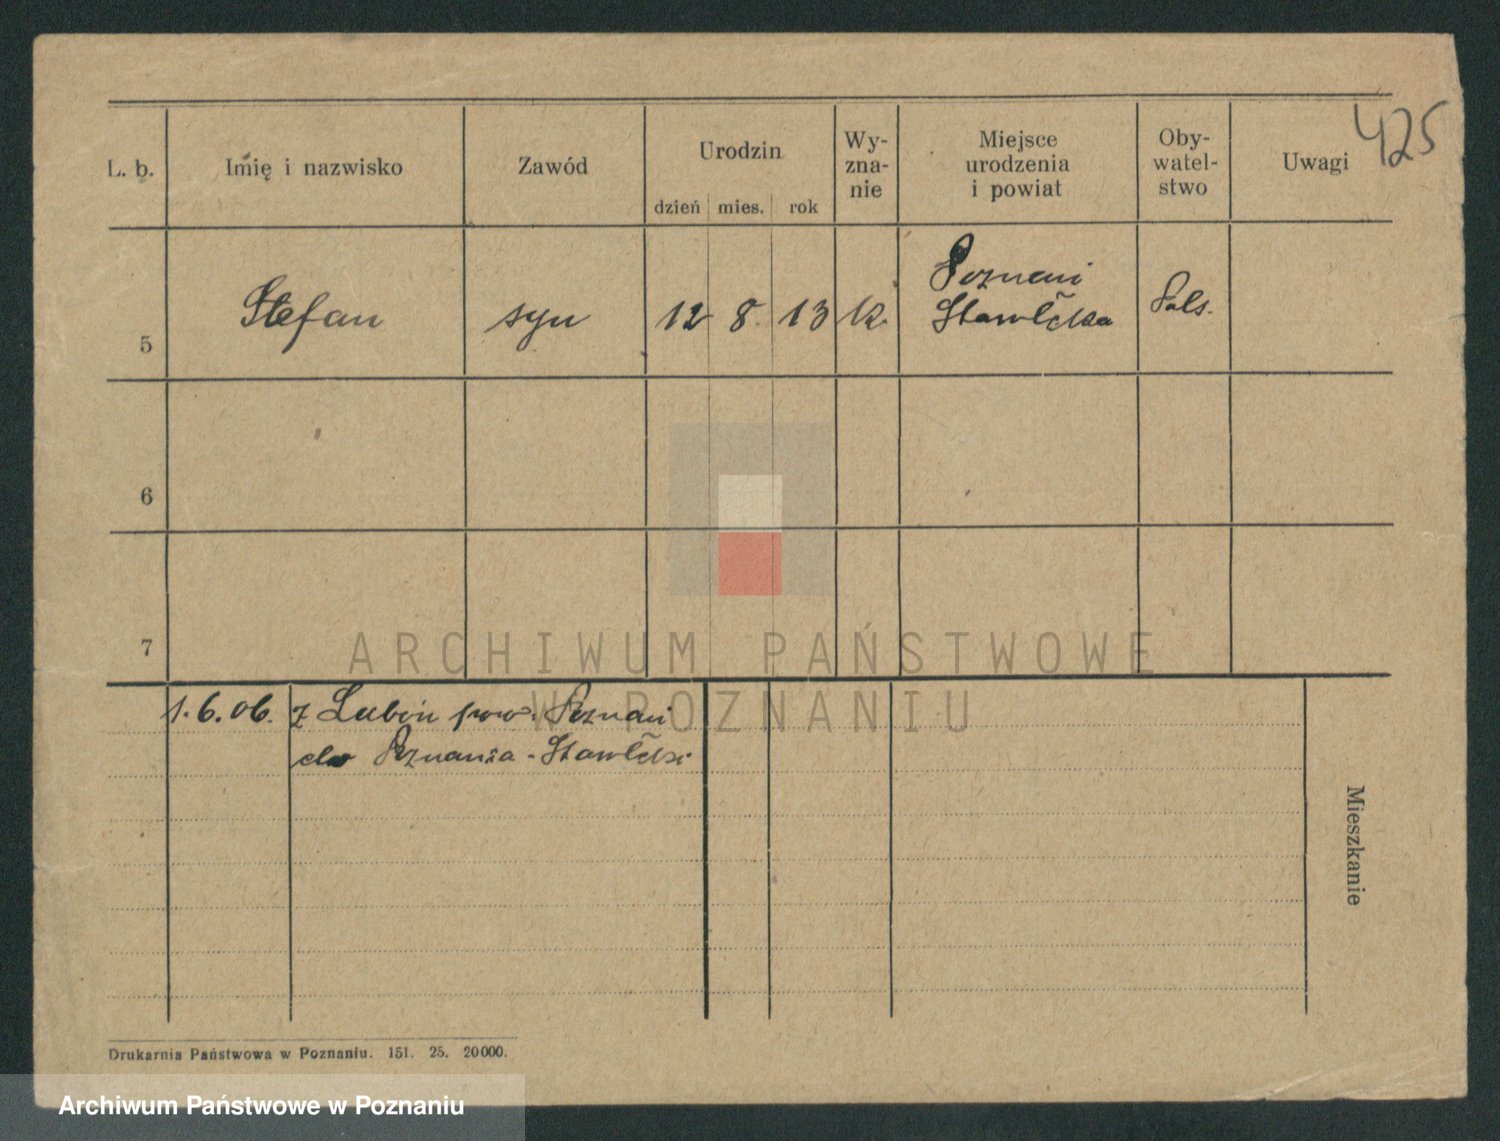 425
L. b.
Imię i nazwisko
Zawód
Urodzin
dzień mies. rok
Wy-
zna-
nie
Miejsce
urodzenia
i powiat
Oby-
watel-
stwo
Uwagi
5 Stefan syn 12 8. 13 k. Poznań Pols.
6
7
ARCHIWUM PAŃSTWOWE
W POZNANIU
1.6.06. z Luboń pow. Poznań
do Poznania -
Mieszkanie
Drukarnia Państwowa w Poznaniu. 151. 25. 20000.
Archiwum Państwowe w Poznaniu